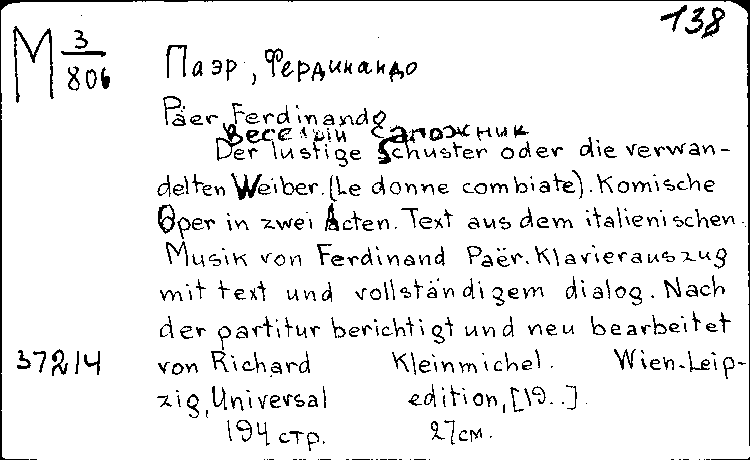 138
М 3/806
Паэр, Фердинандо
Päer, Ferdinando
Веселый сапожник
Der lustige Schuster oder die verwan-
delten Weiber. (Le donne combiate). Komische
Oper in zwei Acten. Text aus dem italienischen.
Musik von Ferdinand Paër. Klavierauszug
mit text und vollständigem dialog. Nach
der partitur berichtigt und neu bearbeitet
37214 von Richard Kleinmichel. Wien-Leip-
zig, Universal edition, [19..].
194 стр. 27см.